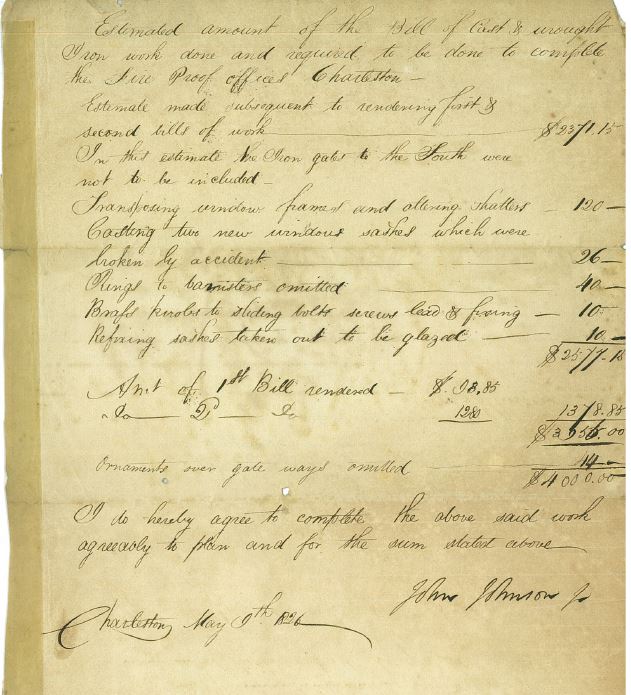 Estimated amount of the Bill of Cast & wrought
Iron work done and required to be done to complete
the Fire Proof offices Charleston —
Estemate made subsequent to rendering first &
second bills of work — $2371.15
In this estimate the Iron gates to the South were
not to be included —
Transposing window frames and altering shutters — 120 —
Casting two new windows sashes which were
broken by accident — 26 —
Rings to bannisters omitted — 40 —
Brass knobs to sliding bolts screws lead & fixing — 10 —
Refixing sashes taken out to be glazed — 10 —
$2577.15
Amt of 1st Bill rendered — $ 98.85
Do — 2d — Do 1280 1378.85
$3956.00
Ornaments over gate ways omitted — 44 —
$4000.00
I do hereby agree to complete the above said work
agreeably to plan and for the sum stated above
John Johnson Jr
Charleston May 9th 1826